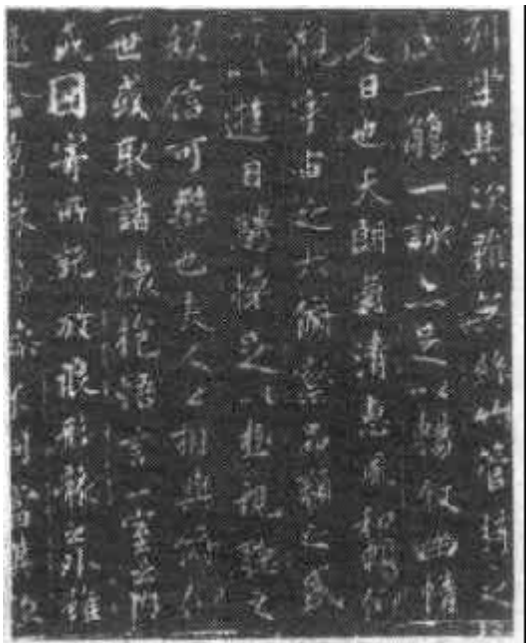 列坐其次雖無絲竹管絃之
盛一觴一詠亦足以暢叙幽情
是日也天朗氣清惠風和暢仰
觀宇宙之大俯察品類之盛
所以遊目騁懷足以極視聽之
娱信可樂也夫人之相與俯仰
一世或取諸懷抱悟言一室之內
或因寄所託放浪形骸之外雖
趣舍萬殊静躁不同當其欣